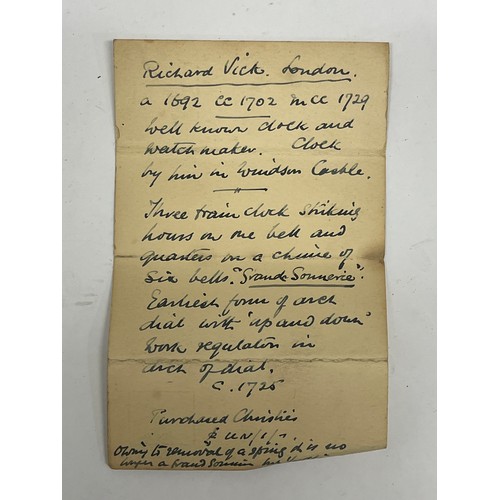 Richard Vick. London.
a 1692 CC 1702 m CC 1729
Well known clock and
watch maker. Clock
by him in Windsor Castle.
"
Three train clock striking
hours on one bell and
quarters on a chime of
six bells. "Grande Sonnerie".
Earliest form of arch
dial with "up and down"
work regulation in
arch of dial.
C. 1725
Purchased Christies
Owing to removal of a spring it is no
longer a Grand Sonnerie